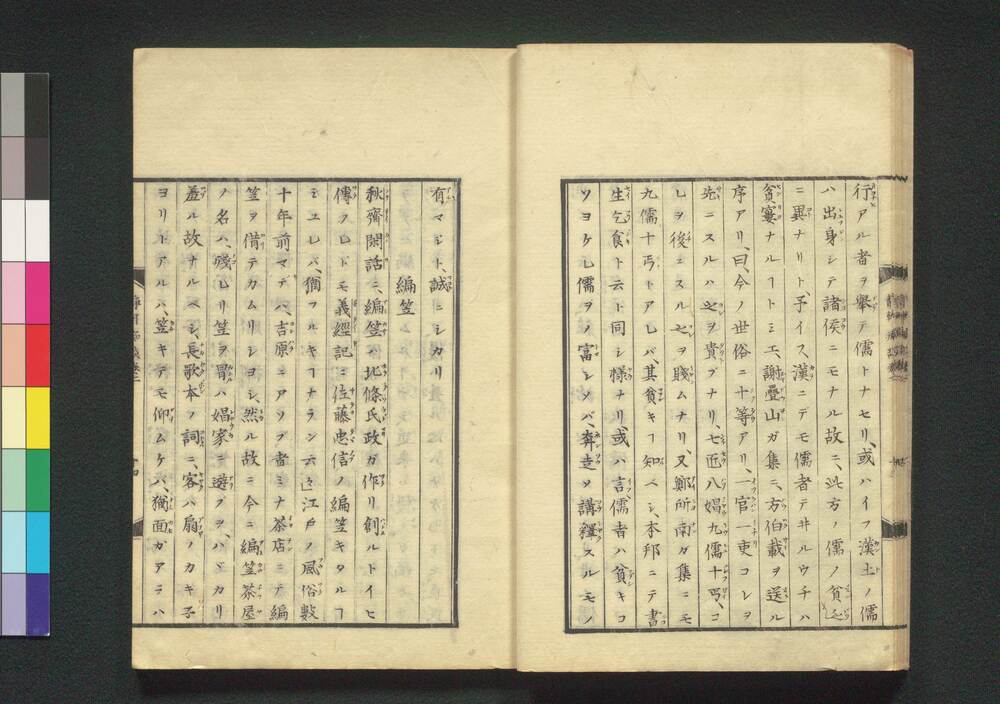 行アル者ヲ擧テ儒トナセリ、或ハイフ漢土ノ儒
ハ出身シテ諸侯ニモナル故ニ、此方ノ儒ノ貧乏
ニ異ナリト予イス漢ニテモ儒者テ井ルウチハ
貧窶ナルヿトミエ、謝疊山ガ集ニ、方伯載ヲ送ル
序アリ、曰、今ノ世俗ニ十等アリ、一官一吏コレヲ
先ニスルハ之ヲ貴ブナリ、七匠八娼九儒十丐、コ
レヲ後ニスル之ヲ賤ムナリ、又鄭所南ガ集ニモ
九儒十丐トアレバ、其貧キヿ知ベシ、本邦ニテ書
生乞食ト云ト同シ樣ナリ、或ハ言儒者ハ貧キコ
ソヨケレ儒ヲノ富シメバ、奔走ソ講釋スルモノ
有マシト、誠ニシカリ
編笠
秋齋閑話ニ、編笠ハ北條氏政ガ作リ創ルトイヒ
傳フレドモ義經記ニ佐藤忠信ノ編笠キタルヿ
ミユレバ、猶フルキヿナラン云〻江戸ノ風俗數
十年前マデハ、吉原ニアソブ者ミナ茶店ニテ編
笠ヲ借テカムリシヨシ、然ル故ニ今ニ編笠茶屋
ノ名ハ、殘レリ笠ヲ冐ハ娼家ニ遊ブヲハヾカリ
羞ル故ナルベシ、長歌本ノ詞ニ客ハ扇ノカキ子
ヨリトアルハ、笠キテモ仰ムケバ猶面ガアラハ